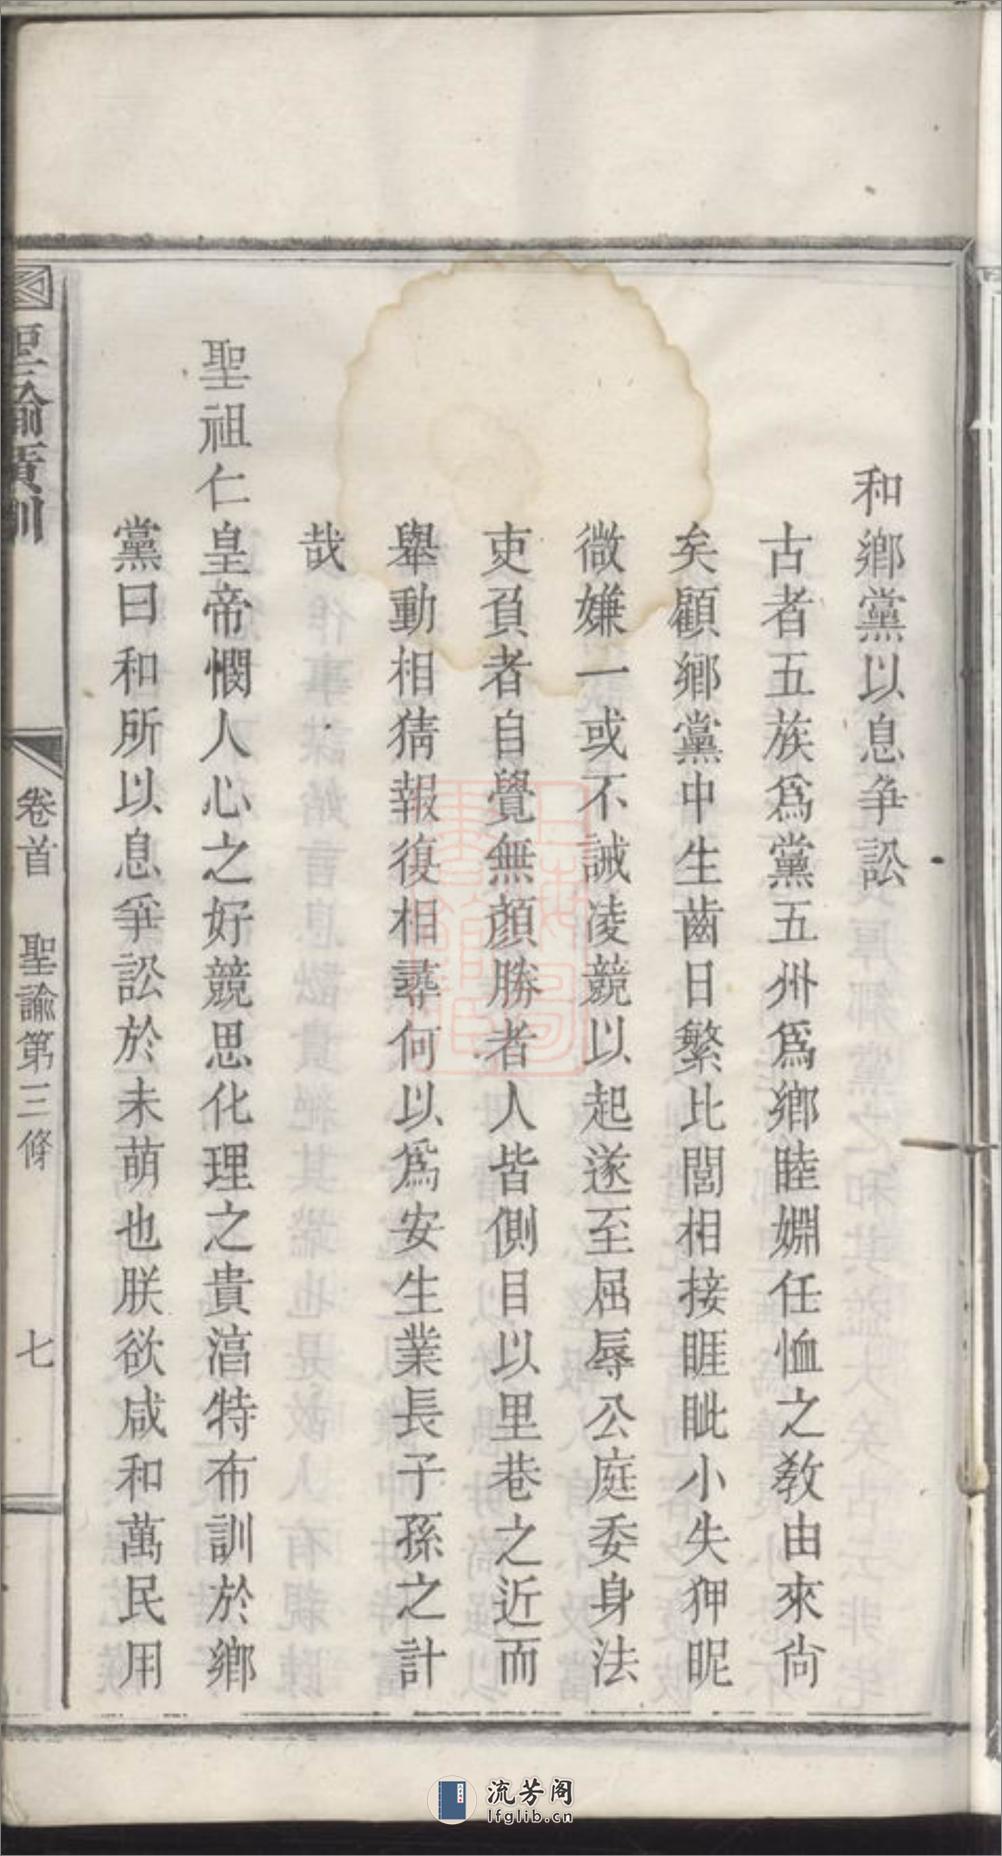 和鄉黨以息爭訟
古者五族爲黨五州爲鄉睦婣任恤之教由來尙
矣顧鄉黨中生齒日繁比閭相接睚眦小失狎昵
微嫌一或不誡凌競以起遂至屈辱公庭委身法
吏負者自覺無顏勝者人皆側目以里巷之近而
舉動相猜報復相尋何以爲安生業長子孫之計
哉
聖祖仁皇帝憫人心之好競思化理之貴滀特布訓於鄉
黨曰和所以息爭訟於未萌也朕欲咸和萬民用
聖諭廣訓
卷首 聖諭第三條
七
流芳阁
lfglib.cn